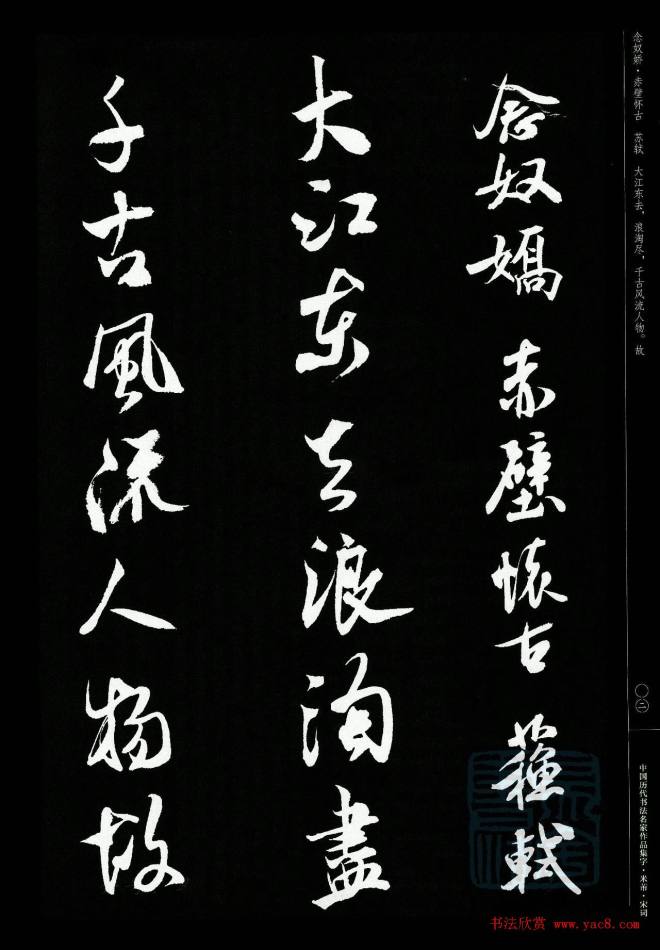 念奴娇·赤壁怀古 苏轼 大江东去，浪淘尽，千古风流人物。故
念奴嬌 赤壁懷古 蘇軾
大江東去浪淘盡
千古風流人物故
〇二
中国历代书法名家作品集字·米芾·宋词
书法欣赏 www.yac8.com